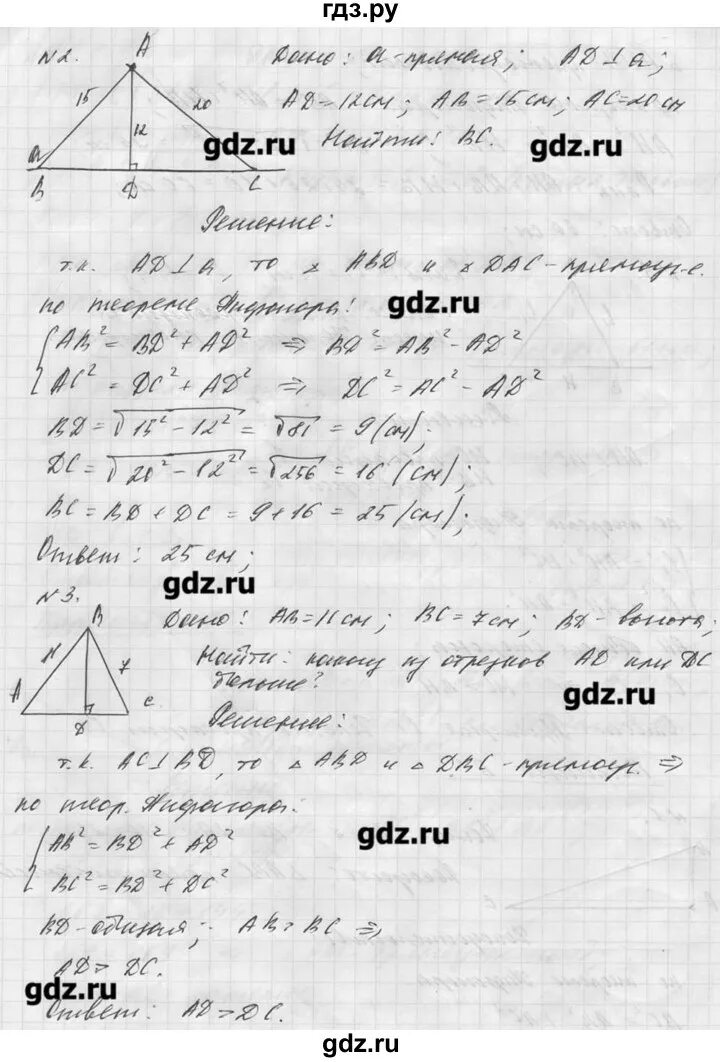 гдз.ру
№2.
A
15
20
12
a
B
D
C
Дано: a-прямая; AD⊥a;
AD=12см; AB=15см; AC=20см
Найти: BC.
gdz.ru
gdz.ru
Решение:
т.к. AD⊥a, то △ ABD и △ DAC-прямоуг-е.
по теореме Пифагора:
gdz.ru
AB² = BD² + AD² ⇒ BD² = AB² - AD²
AC² = DC² + AD² ⇒ DC² = AC² - AD²
BD = √15² - 12² = √81 = 9 (см);
DC = √20² - 12² = √256 = 16 (см);
BC = BD + DC = 9+16 = 25 (см);
Ответ: 25 см;
gdz.ru
№3.
B
7
A
D
C
Дано: AB=11см; BC=7см; BD-высота;
Найти: из отрезков AD или DC
больше?
gdz.ru
Решение:
т.к. AC⊥BD, то △ ABD и △ DBC-прямоуг. ⇒
по теор. Пифагора:
AB² = BD² + AD²
gdz.ru
BC² = BD² + DC²
BD-общая; AB > BC ⇒
AD > DC.
gdz.ru
Ответ: AD > DC.
gdz.ru